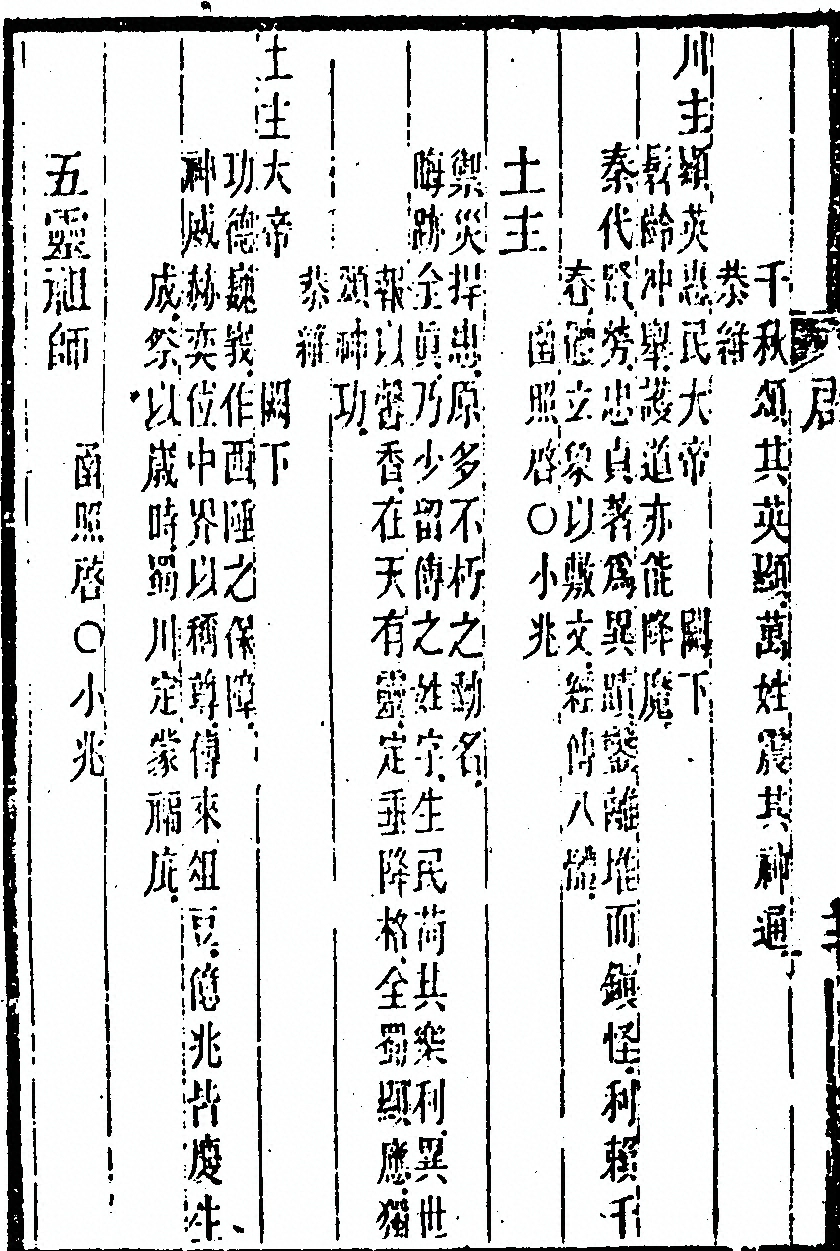 千秋頌其英顯萬姓震其神通
恭維
川主顯英惠民大帝 闕下
髫齡冲舉護道亦能降魔
秦代賢勞忠貞著爲異蹟鑿離堆而鎮怪利賴千
春德立象以敷文經傳八體
函照啓○小兆
土主
禦災捍患原多不朽之勳名
晦跡全眞乃少留傳之姓字生民荷其樂利異世
報以馨香在天有靈定垂降格全蜀顯應獨
頌神功
恭維
土主大帝 闕下
功德巍峩作西陲之保障
神威赫奕位中界以稱尊傳來俎豆億兆皆慶生
成祭以歲時蜀川定蒙福庇
函照啓○小兆
五靈祖師